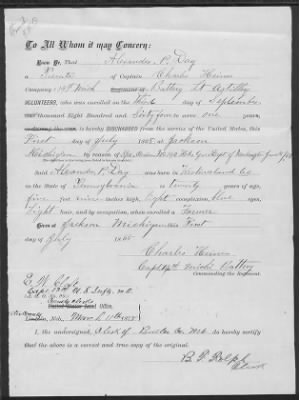 To All Whom it may Concern:
Know Ye, That Alexander P. Day
a Private of Captain Charles Heine
Company, 14th Mich Battery Lt Artillery
VOLUNTEERS, who was enrolled on the Third day of September
thousand Eight Hundred and Sixty four to serve one years,
is hereby DISCHARGED from the service of the United States, this
First day of July 1865 at Jackson
Michigan by reason of
said Alexander P. Day was born in Co.
in the State of Pennsylvania is twenty years of age,
five feet nine inches high, Light complexion, blue eyes,
Light hair, and by occupation, when enrolled a Farmer
at Jackson Michigan this First
day of July 1865.
Charles Heine
Capt 14th Mich Battery
Commanding the Regiment.
E. W.
Capt U.S. Infty
Neb., 1888
I, the undersigned, a Clerk of Co. Neb. do hereby certify
that the above is a correct and true copy of the original.
B. F. Rolph
Clerk